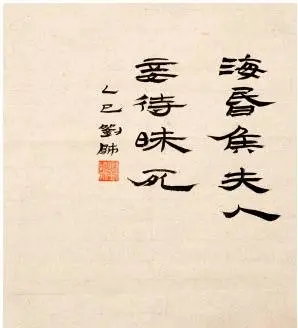 海昬侯夫人
妾待昧死
乙巳劉